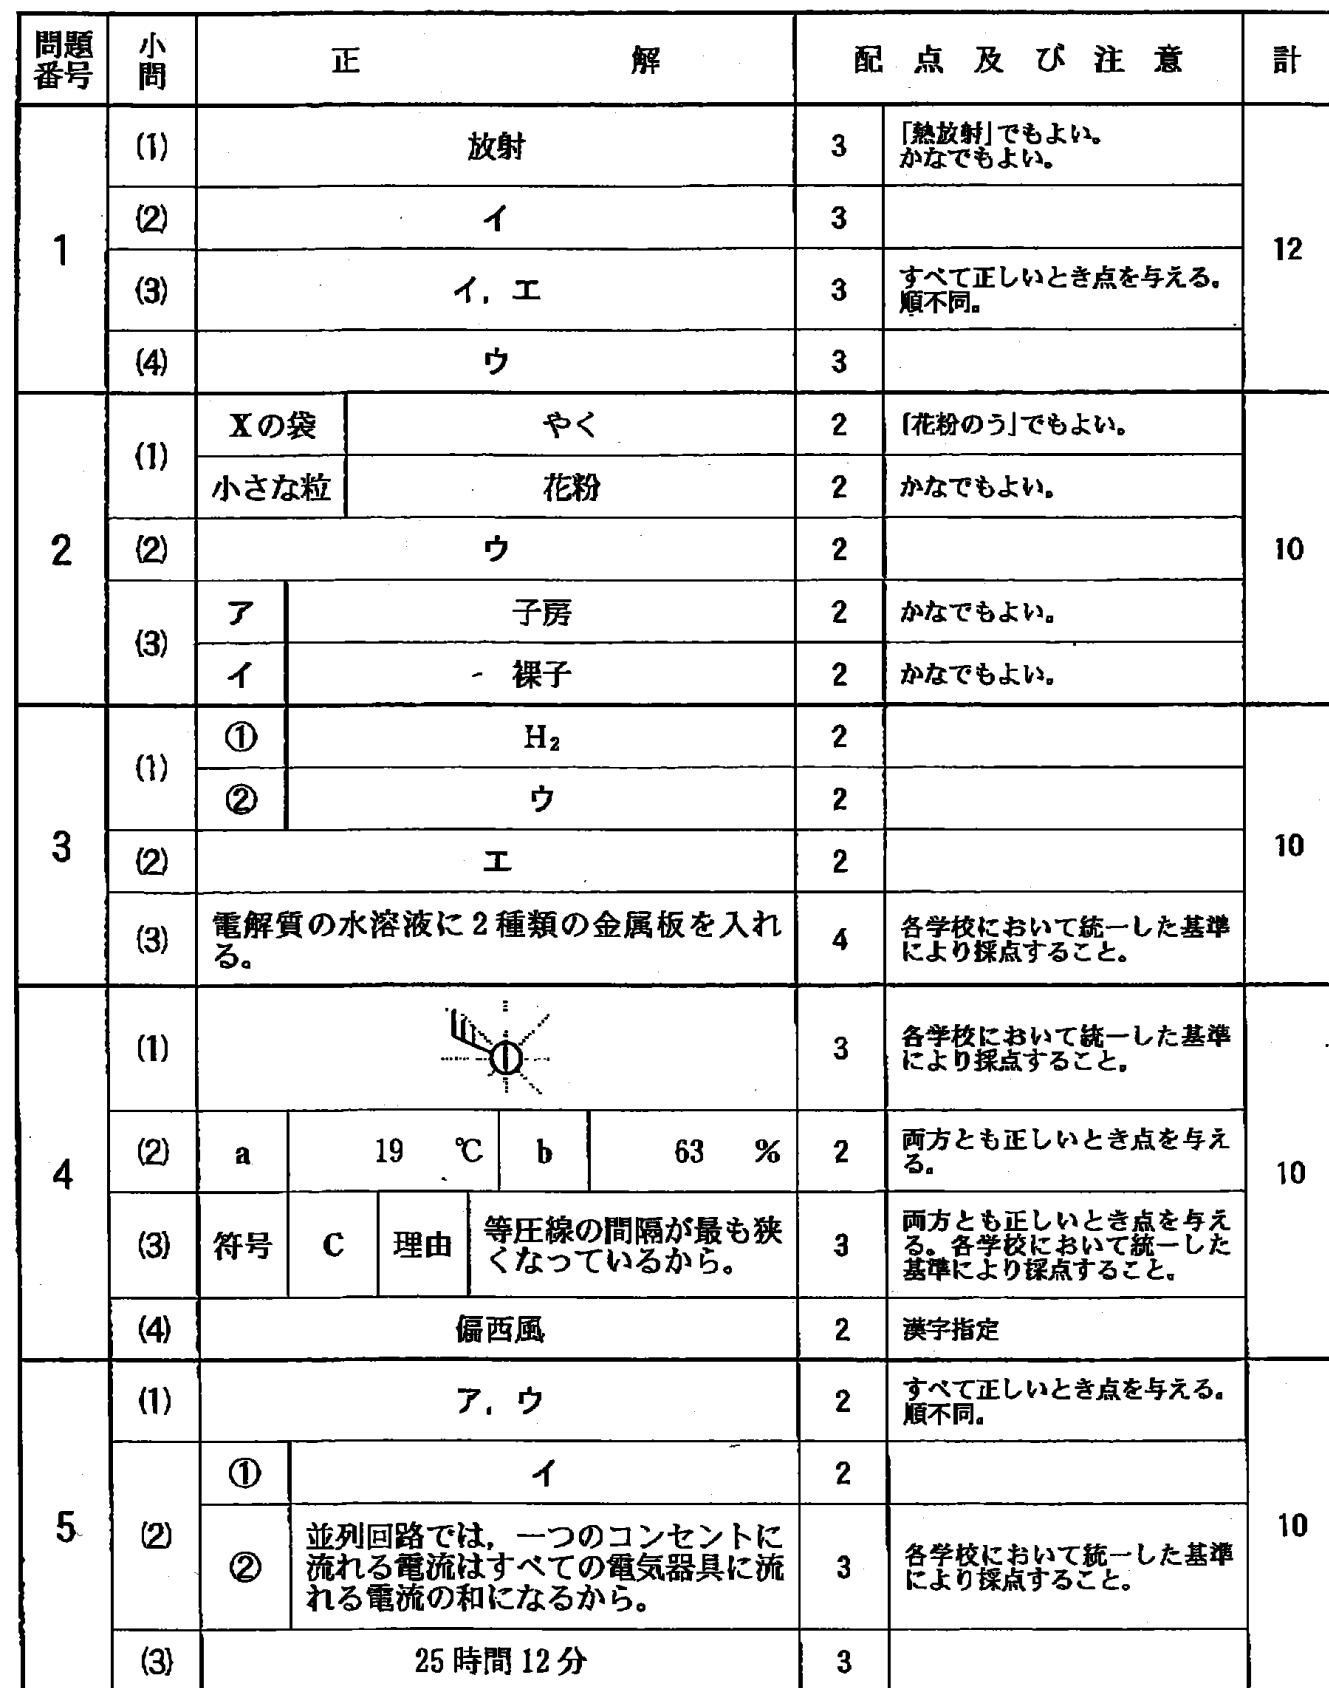 問題番号 小問 正解 配点及び注意 計
1 (1) 放射 3 「熱放射」でもよい。かなでもよい。 12
(2) イ 3
(3) イ，エ 3 すべて正しいとき点を与える。順不同。
(4) ウ 3
2 (1) Xの袋 やく 2 「花粉のう」でもよい。 10
小さな粒 花粉 2 かなでもよい。
(2) ウ 2
(3) ア 子房 2 かなでもよい。
イ 裸子 2 かなでもよい。
3 (1) ① H₂ 2 10
② ウ 2
(2) エ 2
(3) 電解質の水溶液に2種類の金属板を入れる。 4 各学校において統一した基準により採点すること。
4 (1) 3 各学校において統一した基準により採点すること。 10
(2) a 19 ℃ b 63 % 2 両方とも正しいとき点を与える。
(3) 符号 C 理由 等圧線の間隔が最も狭くなっているから。 3 両方とも正しいとき点を与える。各学校において統一した基準により採点すること。
(4) 偏西風 2 漢字指定
5 (1) ア，ウ 2 すべて正しいとき点を与える。順不同。 10
(2) ① イ 2
② 並列回路では，一つのコンセントに流れる電流はすべての電気器具に流れる電流の和になるから。 3 各学校において統一した基準により採点すること。
(3) 25時間12分 3